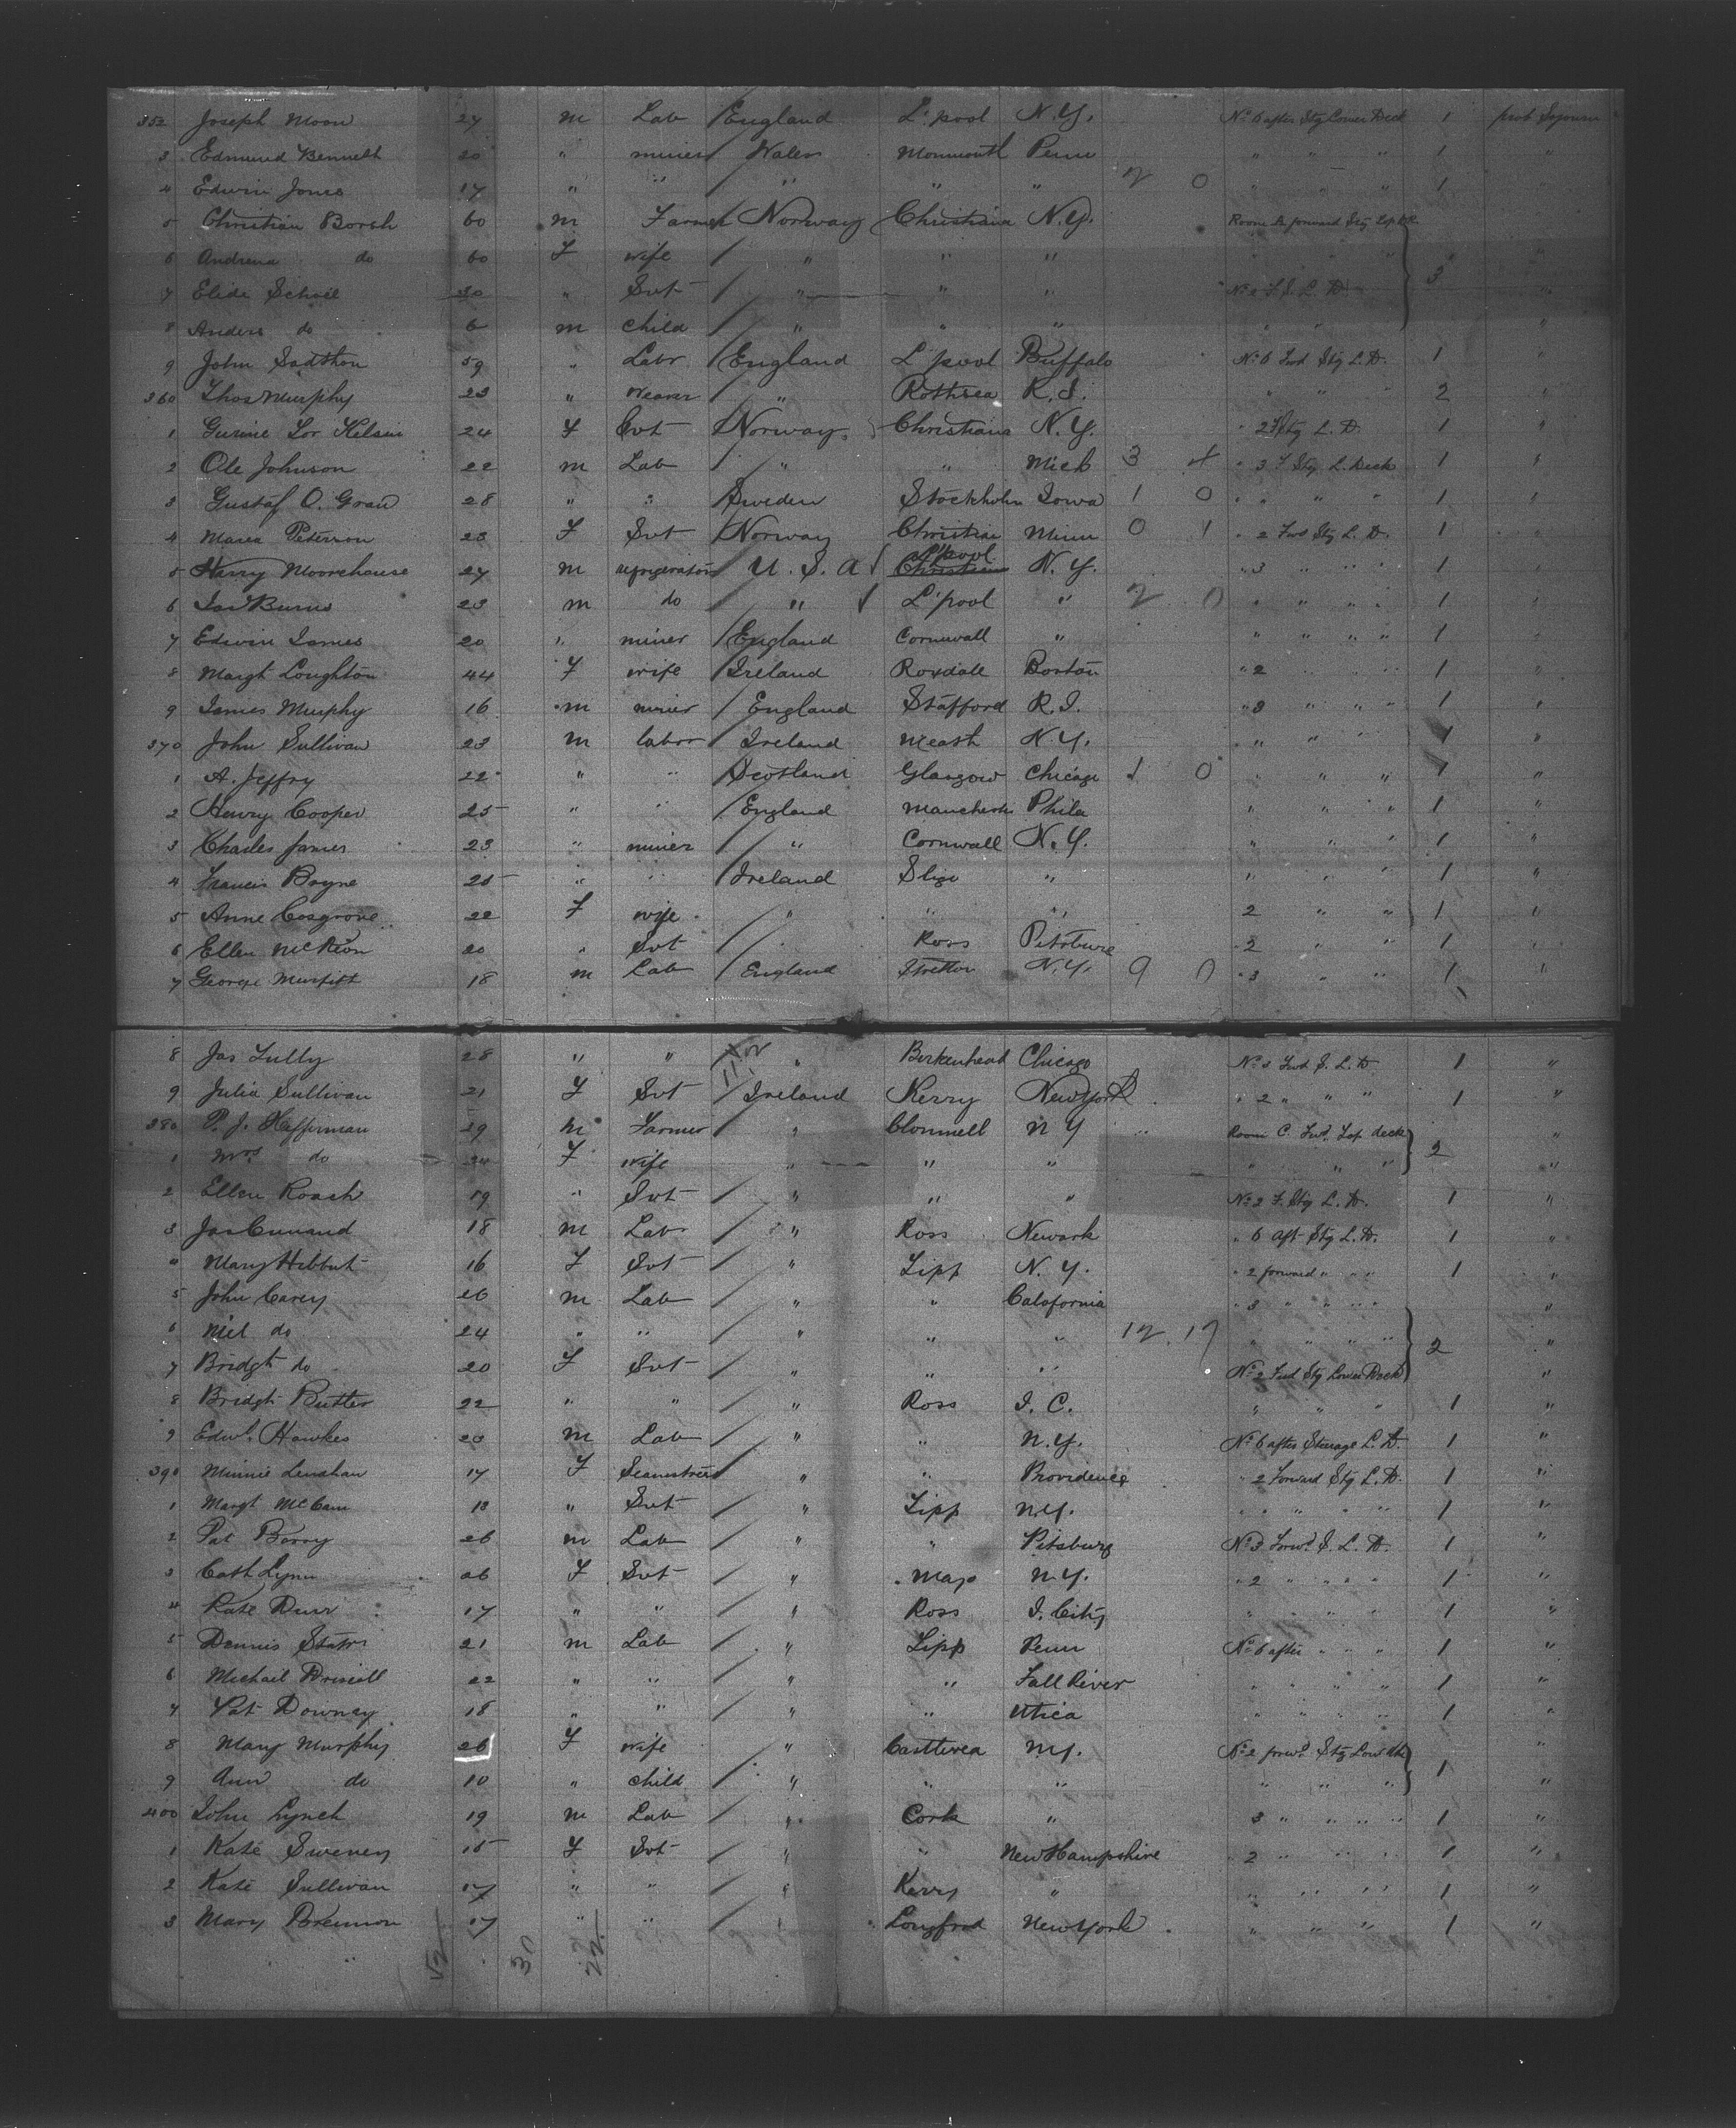 352 Joseph Moon 27 m Lab England L'pool N.Y. No 6 after Stg Lower Deck 1 prob Sojourn
3 Edmund Bennett 20 " miner Wales Monmouth Penn " " " 1 "
4 Edwin Jones 17 " " " " " 2 0 " " " 1
5 Christian Borsh 60 m Farmer Norway Christiana N.Y. Room A forward Stg
6 Andrena do 60 F wife " " " " " " 3 "
7 Elide 30 " Svt " " " No 2 F S. L. D.
8 Anders do 6 m child " " " " " "
9 John 59 " Labr England L'pool Buffalo No 6 Fwd Stg L. D. 1 "
360 Thos Murphy 23 " Weaver " Rothsea R.I. " " " 2 "
1 Gurine 24 F Svt Norway Christiana N.Y. " 2 F Stg L. D. 1 "
2 Ole Johnson 22 m Lab " " Mich 3 4 " 3 F Stg L. Deck 1 "
3 Gustaf O. Gran 28 " " Sweden Stockholm Iowa 1 0 " " " " 1 "
4 Maria Peterson 23 F Svt Norway Christian Minn 0 1 " 2 Fwd Stg L. D. 1 "
L'pool
5 Harry Moorehouse 27 m refrigerator U.S.A Christiana N.Y. " 3 " " " 1 "
6 Jas Burns 23 m do " L'pool " 2 0 " " " " 1 "
7 Edwin James 20 " miner England Cornwall " " " " " 1 "
8 Margt Loughton 44 F wife Ireland Rosdale Boston " 2 " " " 1 "
9 James Murphy 16 m miner England Stafford R.I. " 3 " " " 1 "
370 John Sullivan 23 m labor Ireland Meath N.Y. " " " " 1 "
1 A. Jeffry 22 " " Scotland Glasgow Chicago 1 0 " " " 1 "
2 Henry Cooper 25 " " England Manchestr Phila " " " 1 "
3 Charles James 23 " miner " Cornwall N.Y. " " " 1 "
4 Francis Boyne 25 " " Ireland Sligo " " " " 1 "
5 Anne Cosgrove 22 F wife " " " 2 " " 1 "
6 Ellen McKeon 20 " Svt " Ross Pitsburg " 2 " " 1 "
7 George 18 m Lab England Stretton N.Y. 9 0 " 3 " " 1 "
8 Jas Lully 28 " " " Birkenhead Chicago No 3 Fwd S. L. D. 1 "
9 Julia Sullivan 21 F Svt Ireland Kerry New York " 2 " " " 1 "
380 P. J. Heffernan 29 m Farmer " Clonmell N Y Room C. Fwd. Top deck "
1 Mrs do 24 F wife " " " " " " 2 "
2 Ellen Roach 19 " Svt " " " No 2 F. Stg L. D. 1 "
3 Jas Cunard 18 m Lab " Ross Newark " 6 Aft Stg L. D. 1 "
4 Mary Hibbut 16 F Svt " Tipp N.Y. " 2 forward " " " 1 "
5 John Carey 26 m Lab " " Calofornia " 3 " " " "
6 Mil do 24 " " " " " 12 17 " " " " 2 "
7 Bridgt do 20 F Svt " " " No 2 Fwd Stg Lower Deck "
8 Bridgt Butler 22 " " " Ross J. C. " " " 1 "
9 Edwd. Hawkes 20 m Lab " " N.Y. No 6 after Steerage L. D. 1 "
390 Minnie Lenahan 17 F Seamstress " " Providence " 2 Forward Stg L. D. 1 "
1 Margt McCann 18 " Svt " Tipp N.Y. " " " " 1 "
2 Pat Barry 26 m Lab " " Pitsburg No 3 Forwd S. L. D. 1 "
3 Cath Lynn 26 F Svt " Mayo N.Y. " 2 " " " 1 "
4 Kate Durr 17 " " " Ross J. City " " " " 1 "
5 Dennis 21 m Lab " Tipp Penn No 6 after " " " 1 "
6 Michail Driscoll 22 " " " " Fall River " " " " 1 "
7 Pat Downey 18 " " " " Utica " " " " 1 "
8 Mary Murphy 26 F wife " Castlerea N.Y. No 2 forwd. Stg Low dk "
9 Ann do 10 " child " " " " " " 1 "
400 John Lynch 19 m Lab " Cork " 3 " " " " 1 "
1 Kate Sweney 15 F Svt " " New Hampshire " 2 " " " 1 "
2 Kate Sullivan 17 " " " Kerry " " " " " 1 "
3 Mary Brennon 17 " " " Longford New York " " " 1 "
52 30 22